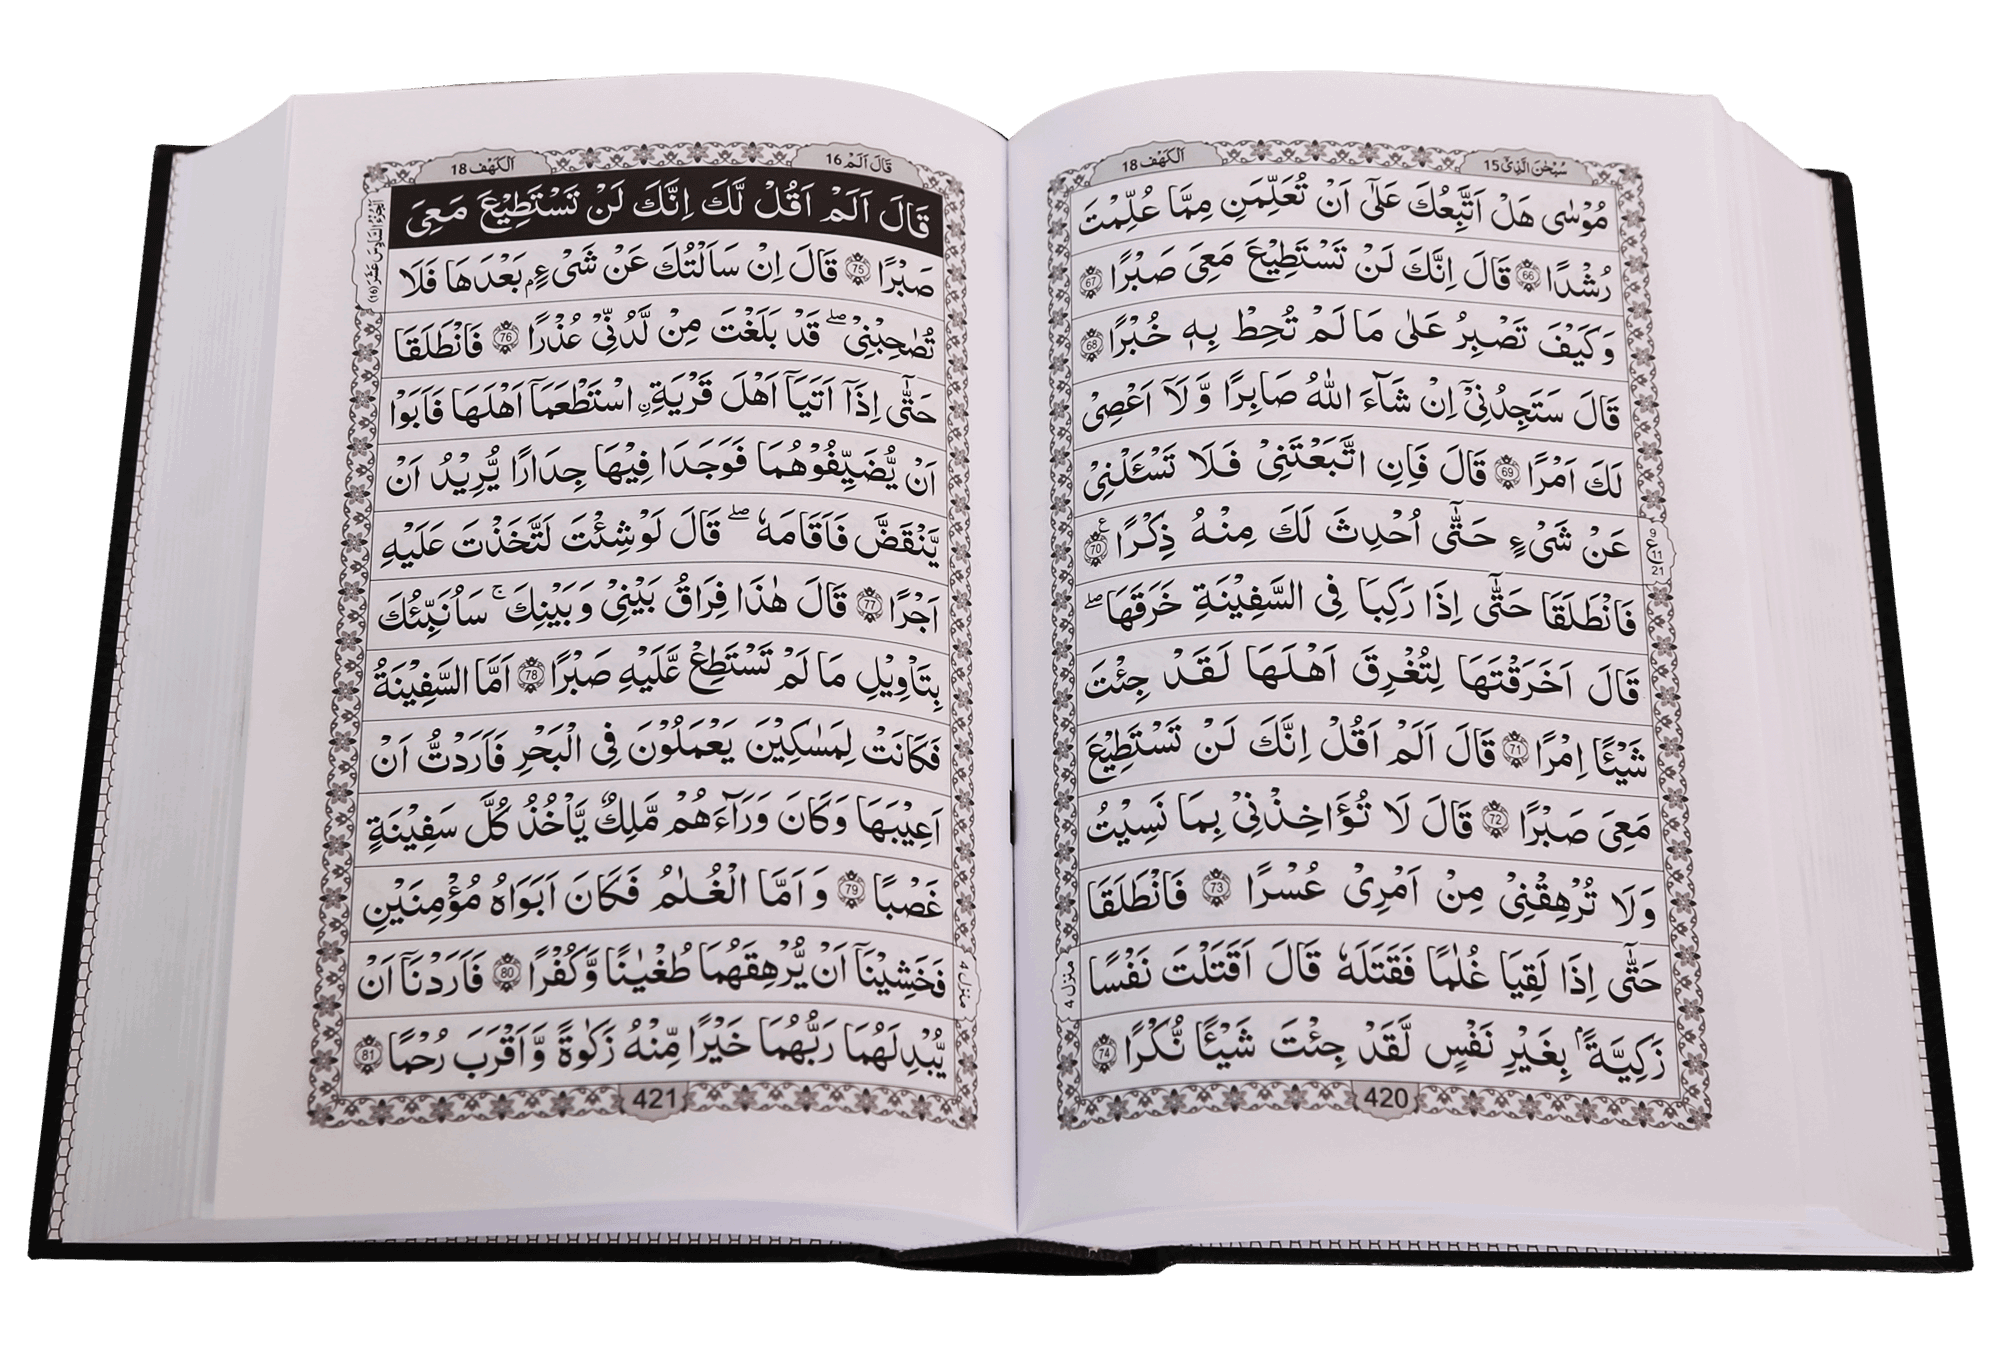 سُبْحٰنَ الَّذِیْۤ 15
اَلْكَهْف 18
مُوْسٰى هَلْ اَتَّبِعُكَ عَلٰۤى اَنْ تُعَلِّمَنِ مِمَّا عُلِّمْتَ
رُشْدًا 66 قَالَ اِنَّكَ لَنْ تَسْتَطِیْعَ مَعِیَ صَبْرًا 67
وَكَیْفَ تَصْبِرُ عَلٰى مَا لَمْ تُحِطْ بِهٖ خُبْرًا 68
قَالَ سَتَجِدُنِیْۤ اِنْ شَآءَ اللّٰهُ صَابِرًا وَّ لَاۤ اَعْصِیْ
لَكَ اَمْرًا 69 قَالَ فَاِنِ اتَّبَعْتَنِیْ فَلَا تَسْـَٔلْنِیْ
عَنْ شَیْءٍ حَتّٰۤى اُحْدِثَ لَكَ مِنْهُ ذِكْرًا 70 ع
فَانْطَلَقَا حَتّٰۤى اِذَا رَكِبَا فِی السَّفِیْنَةِ خَرَقَهَا ؕۖ
قَالَ اَخَرَقْتَهَا لِتُغْرِقَ اَهْلَهَا لَقَدْ جِئْتَ
شَیْـًٔا اِمْرًا 71 قَالَ اَلَمْ اَقُلْ اِنَّكَ لَنْ تَسْتَطِیْعَ
مَعِیَ صَبْرًا 72 قَالَ لَا تُؤَاخِذْنِیْ بِمَا نَسِیْتُ
وَلَا تُرْهِقْنِیْ مِنْ اَمْرِیْ عُسْرًا 73 فَانْطَلَقَا
حَتّٰۤى اِذَا لَقِیَا غُلٰمًا فَقَتَلَهٗ قَالَ اَقَتَلْتَ نَفْسًا
زَكِیَّةًۢ بِغَیْرِ نَفْسٍ لَّقَدْ جِئْتَ شَیْـًٔا نُّكْرًا 74
ع 9 11 21
منزل 4
420
قَالَ اَلَمْ 16
اَلْكَهْف 18
قَالَ اَلَمْ اَقُلْ لَّكَ اِنَّكَ لَنْ تَسْتَطِیْعَ مَعِیَ
صَبْرًا 75 قَالَ اِنْ سَاَلْتُكَ عَنْ شَیْءٍۭ بَعْدَهَا فَلَا
تُصٰحِبْنِیْ ۖ قَدْ بَلَغْتَ مِنْ لَّدُنِّیْ عُذْرًا 76 فَانْطَلَقَا
حَتّٰۤى اِذَاۤ اَتَیَاۤ اَهْلَ قَرْیَةِ ن اسْتَطْعَمَاۤ اَهْلَهَا فَاَبَوْا
اَنْ یُّضَیِّفُوْهُمَا فَوَجَدَا فِیْهَا جِدَارًا یُّرِیْدُ اَنْ
یَّنْقَضَّ فَاَقَامَهٗ ۖ قَالَ لَوْ شِئْتَ لَتَّخَذْتَ عَلَیْهِ
اَجْرًا 77 قَالَ هٰذَا فِرَاقُ بَیْنِیْ وَبَیْنِكَ ۚ سَاُنَبِّئُكَ
بِتَاْوِیْلِ مَا لَمْ تَسْتَطِعْ عَّلَیْهِ صَبْرًا 78 اَمَّا السَّفِیْنَةُ
فَكَانَتْ لِمَسٰكِیْنَ یَعْمَلُوْنَ فِی الْبَحْرِ فَاَرَدْتُّ اَنْ
اَعِیْبَهَا وَكَانَ وَرَآءَهُمْ مَّلِكٌ یَّاْخُذُ كُلَّ سَفِیْنَةٍ
غَصْبًا 79 وَاَمَّا الْغُلٰمُ فَكَانَ اَبَوَاهُ مُؤْمِنَیْنِ
فَخَشِیْنَاۤ اَنْ یُّرْهِقَهُمَا طُغْیٰنًا وَّكُفْرًا 80 فَاَرَدْنَاۤ اَنْ
یُّبْدِلَهُمَا رَبُّهُمَا خَیْرًا مِّنْهُ زَكٰوةً وَّاَقْرَبَ رُحْمًا 81
اَلْجُزْءُ السَّادِسَ عَشَرَ (16)
منزل 4
421